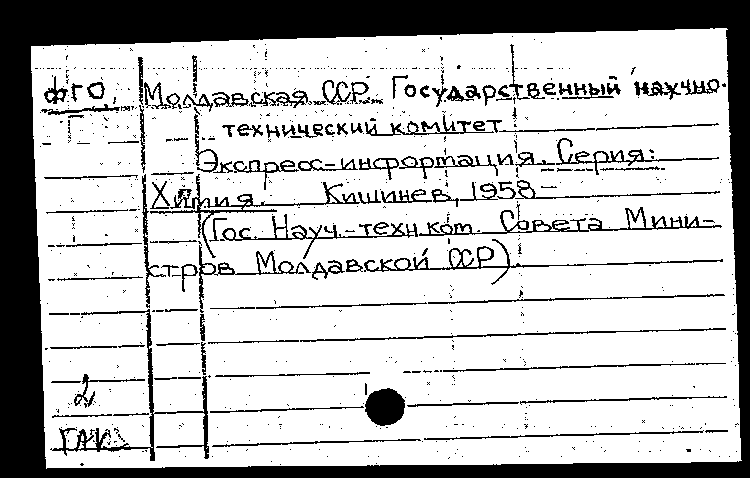 ФГО. Молдавская ССР. Государственный научно-
технический комитет
Экспресс-информация. Серия:
Химия. Кишинев, 1958-
(Гос. Науч.-техн.ком. Совета Мини-
стров Молдавской ССР).
2